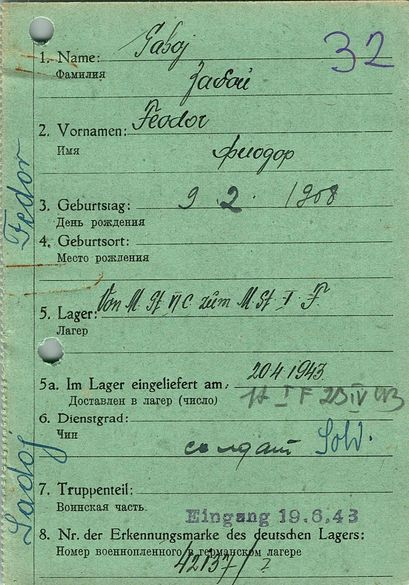 32
1. Name:
Фамилия
Забой
2. Vornamen: Feodor
Имя
Фиодор
3. Geburtstag: 9 2. 1908
День рождения
4. Geburtsort:
Место рождения
5. Lager: Von M. St VI C. zum M. St. I F.
Лагер
5a. Im Lager eingeliefert am, 20 4 1943
Доставлен в лагер (число)
6. Dienstgrad:
Чин
солдат Sold.
7. Truppenteil:
Воинская часть.
Eingang 19.6.43
8. Nr. der Erkennungsmarke des deutschen Lagers:
Номер военнопленного в германском лагере
42137/?
Fedor
Sadoj